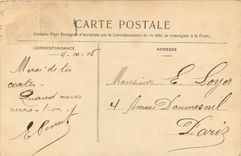 CARTE POSTALE
Certains Pays Etrangers n'acceptent pas la Correspondance de ce côté, se renseigner à la Poste.
CORRESPONDANCE
ADRESSE
4-10-05
Merci de tes
cartes.
Quand nous
verra-t-on?
Monsieur E. Loyer
4 Avenue Daumesnil
Paris